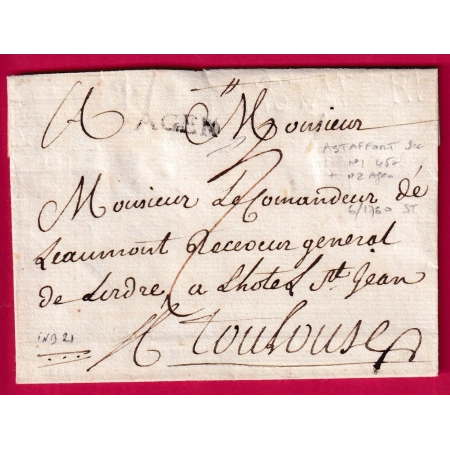 A
AGEN
Monsieur
ASTAFFORT
n°1 450
+ n°2 Agen
6/1760 ST
Monsieur Le Comandeur dé
Leaumont Receveur general
de Lordre, a Lhotel St Jean
IND 21
A toulouse